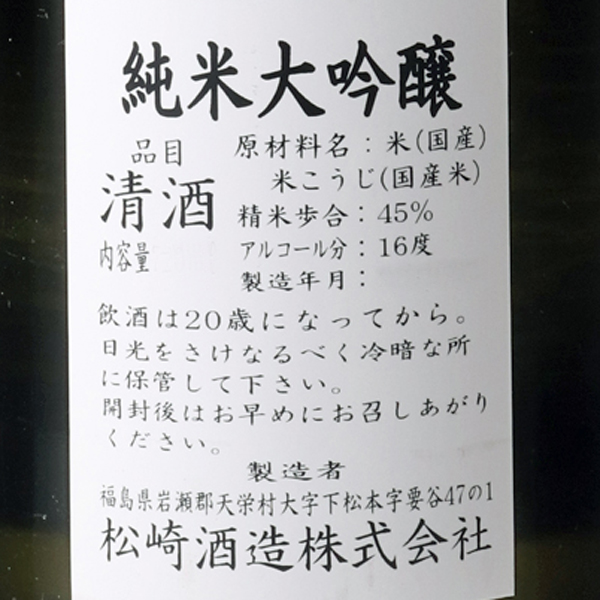 純米大吟醸
品目
清酒
内容量
原材料名：米(国産)
米こうじ(国産米)
精米歩合：45%
アルコール分：16度
製造年月：
飲酒は20歳になってから。
日光をさけなるべく冷暗な所
に保管して下さい。
開封後はお早めにお召しあがり
ください。
製造者
福島県岩瀬郡天栄村大字下松本字要谷47の1
松崎酒造株式会社